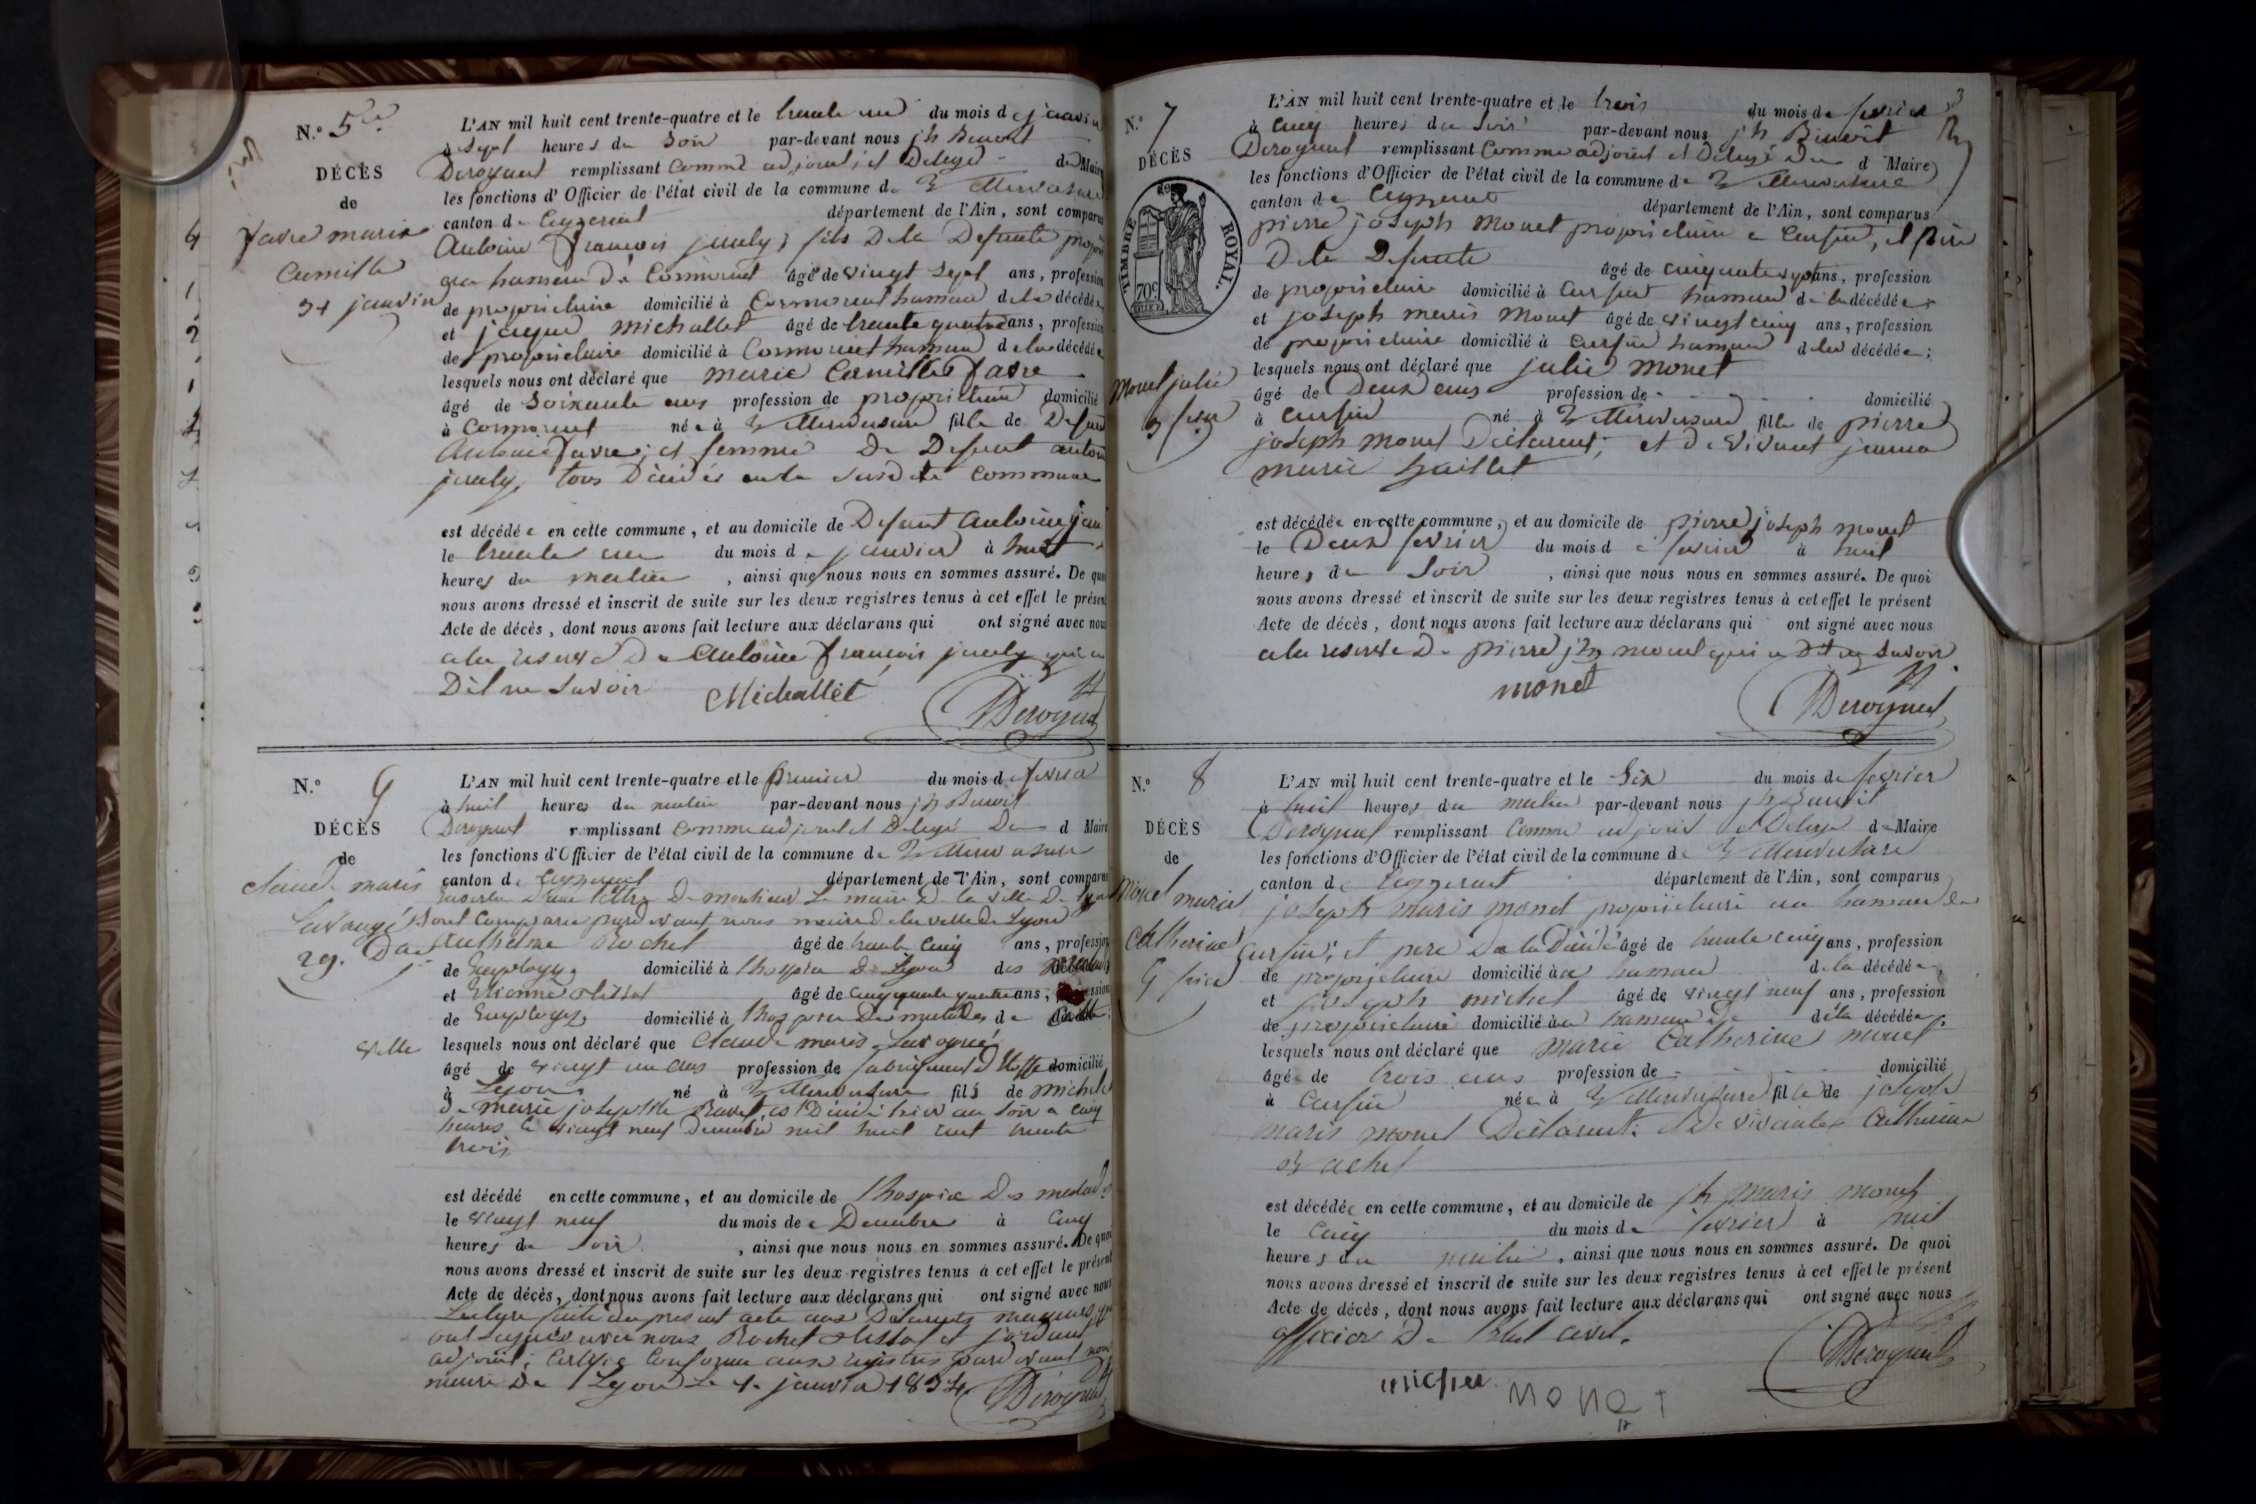 N.o 5
DÉCÈS
de
favre marie
Camille
31 janvier
L'AN mil huit cent trente-quatre et le trente un du mois de janvier
à sept heures du soir par-devant nous jh Benoit
Deroguat remplissant comme adjoint et Delegé de Maire
les fonctions d'Officier de l'état civil de la commune de Villereversure
canton de Ceyzeriat département de l'Ain, sont comparus
Antoine françois fils De la Defunte
au hameau de Cormoruet âgé de vingt sept ans, profession
de propriétaire domicilié à Cormoruet hameau de la décédée
et jaque michallet âgé de trente quatre ans, profession
de propriétaire domicilié à Cormoruet hameau de la décédée
lesquels nous ont déclaré que marie Camille favre
âgé de Soixante ans profession de propriétaire domicilié
à Cormoruet née à Villereversure fille de Defunt
Antoine favre; et femme De Defunt antoine
tous Décédés en la susdite commune
est décédée en cette commune, et au domicile de Defunt Antoine
le trente un du mois de janvier à huit
heures du matin, ainsi que nous nous en sommes assuré. De quoi
nous avons dressé et inscrit de suite sur les deux registres tenus à cet effet le présent
Acte de décès, dont nous avons fait lecture aux déclarans qui ont signé avec nous
a la reserve De Antoine françois qui a
Dit ne Savoir Michallet Deroguat
N.o 6
DÉCÈS
de
Claude marie
29. Dbre
L'AN mil huit cent trente-quatre et le premier du mois de fevrier
à huit heures du matin par-devant nous jh Benoit
Deroguat remplissant comme adjoint et Delegé De d Maire
les fonctions d'Officier de l'état civil de la commune de Villereversure
canton de Ceyzeriat département de l'Ain, sont comparus
D'une lettre De monsieur Le maire De la ville De Lyon
Sont comparu pardevant nous maire de la ville de Lyon
Anthelme Rochet âgé de trente cinq ans, profession
de Employé domicilié à l'hospice De Lyon des malades
et Etienne âgé de cinquante quatre ans, profession
de Employé domicilié à l'hospice Des malades de
ville lesquels nous ont déclaré que Claude marie
âgé de vingt un ans profession de fabriquant D'étoffe domicilié
à Lyon né à Villereversure fils de michel
De marie josephte Ravet, est Décédé hier au soir a cinq
heures le vingt neuf Decembre mil huit cent trente
trois
est décédé en cette commune, et au domicile de l'hospice Des malades
le vingt neuf du mois de Decembre à cinq
heures du soir, ainsi que nous nous en sommes assuré. De quoi
nous avons dressé et inscrit de suite sur les deux registres tenus à cet effet le présent
Acte de décès, dont nous avons fait lecture aux déclarans qui ont signé avec nous
Lecture faite du present acte aux Déclarants majeurs, qui
ont Signés avec nous Rochet et jordant
adjoint; certifié conforme aux registres pardevant nous
maire De Lyon Le 1. janvier 1834 Deroguat
3
N.o 7
DÉCÈS
TIMBRE ROYAL
70c
Monet julie
3 fevr
L'AN mil huit cent trente-quatre et le trois du mois de fevrier
à cinq heures du Soir par-devant nous jh Benoit
Deroguat remplissant comme adjoint et Delegé De d Maire
les fonctions d'Officier de l'état civil de la commune de Villereversure
canton de Ceyzeriat département de l'Ain, sont comparus
pierre joseph Monet propriétaire a Cursiu, et père
De la Defunte âgé de cinquante sept ans, profession
de propriétaire domicilié à Cursiu hameau de la décédée
et joseph marie Monet âgé de vingt cinq ans, profession
de propriétaire domicilié à Cursiu hameau de la décédée;
lesquels nous ont déclaré que julie monet
âgé de Deux ans profession de domicilié
à Cursiu né à Villereversure fille de pierre
joseph monet Déclarant; et de vivante jeanne
marie
est décédée en cette commune, et au domicile de pierre joseph monet
le Deux fevrier du mois de fevrier à huit
heures du Soir, ainsi que nous nous en sommes assuré. De quoi
nous avons dressé et inscrit de suite sur les deux registres tenus à cet effet le présent
Acte de décès, dont nous avons fait lecture aux déclarans qui ont signé avec nous
a la reserve De pierre jh monet qui a dit ne Savoir
monet Deroguat
N.o 8
DÉCÈS
de
Monet marie
Catherine
L'AN mil huit cent trente-quatre et le Six du mois de fevrier
à huit heures du matin par-devant nous jh Benoit
Deroguat remplissant comme adjoint et Delegé de Maire
les fonctions d'Officier de l'état civil de la commune de Villereversure
canton de Ceyzeriat département de l'Ain, sont comparus
joseph marie monet propriétaire au hameau de
Cursiu; et pere De la Décédé âgé de trente cinq ans, profession
de propriétaire domicilié à au hameau de la décédée
et joseph michel âgé de vingt neuf ans, profession
de propriétaire domicilié à au hameau de de la décédée;
lesquels nous ont déclaré que marie Catherine monet
âgée de trois ans profession de domicilié
à Cursiu née à Villereversure fille de joseph
marie monet Déclarant; et De vivante Catherine
est décédée en cette commune, et au domicile de jh marie monet
le cinq du mois de fevrier à huit
heures du matin, ainsi que nous nous en sommes assuré. De quoi
nous avons dressé et inscrit de suite sur les deux registres tenus à cet effet le présent
Acte de décès, dont nous avons fait lecture aux déclarans qui ont signé avec nous
officier De l'état civil.
michel MONET Deroguat